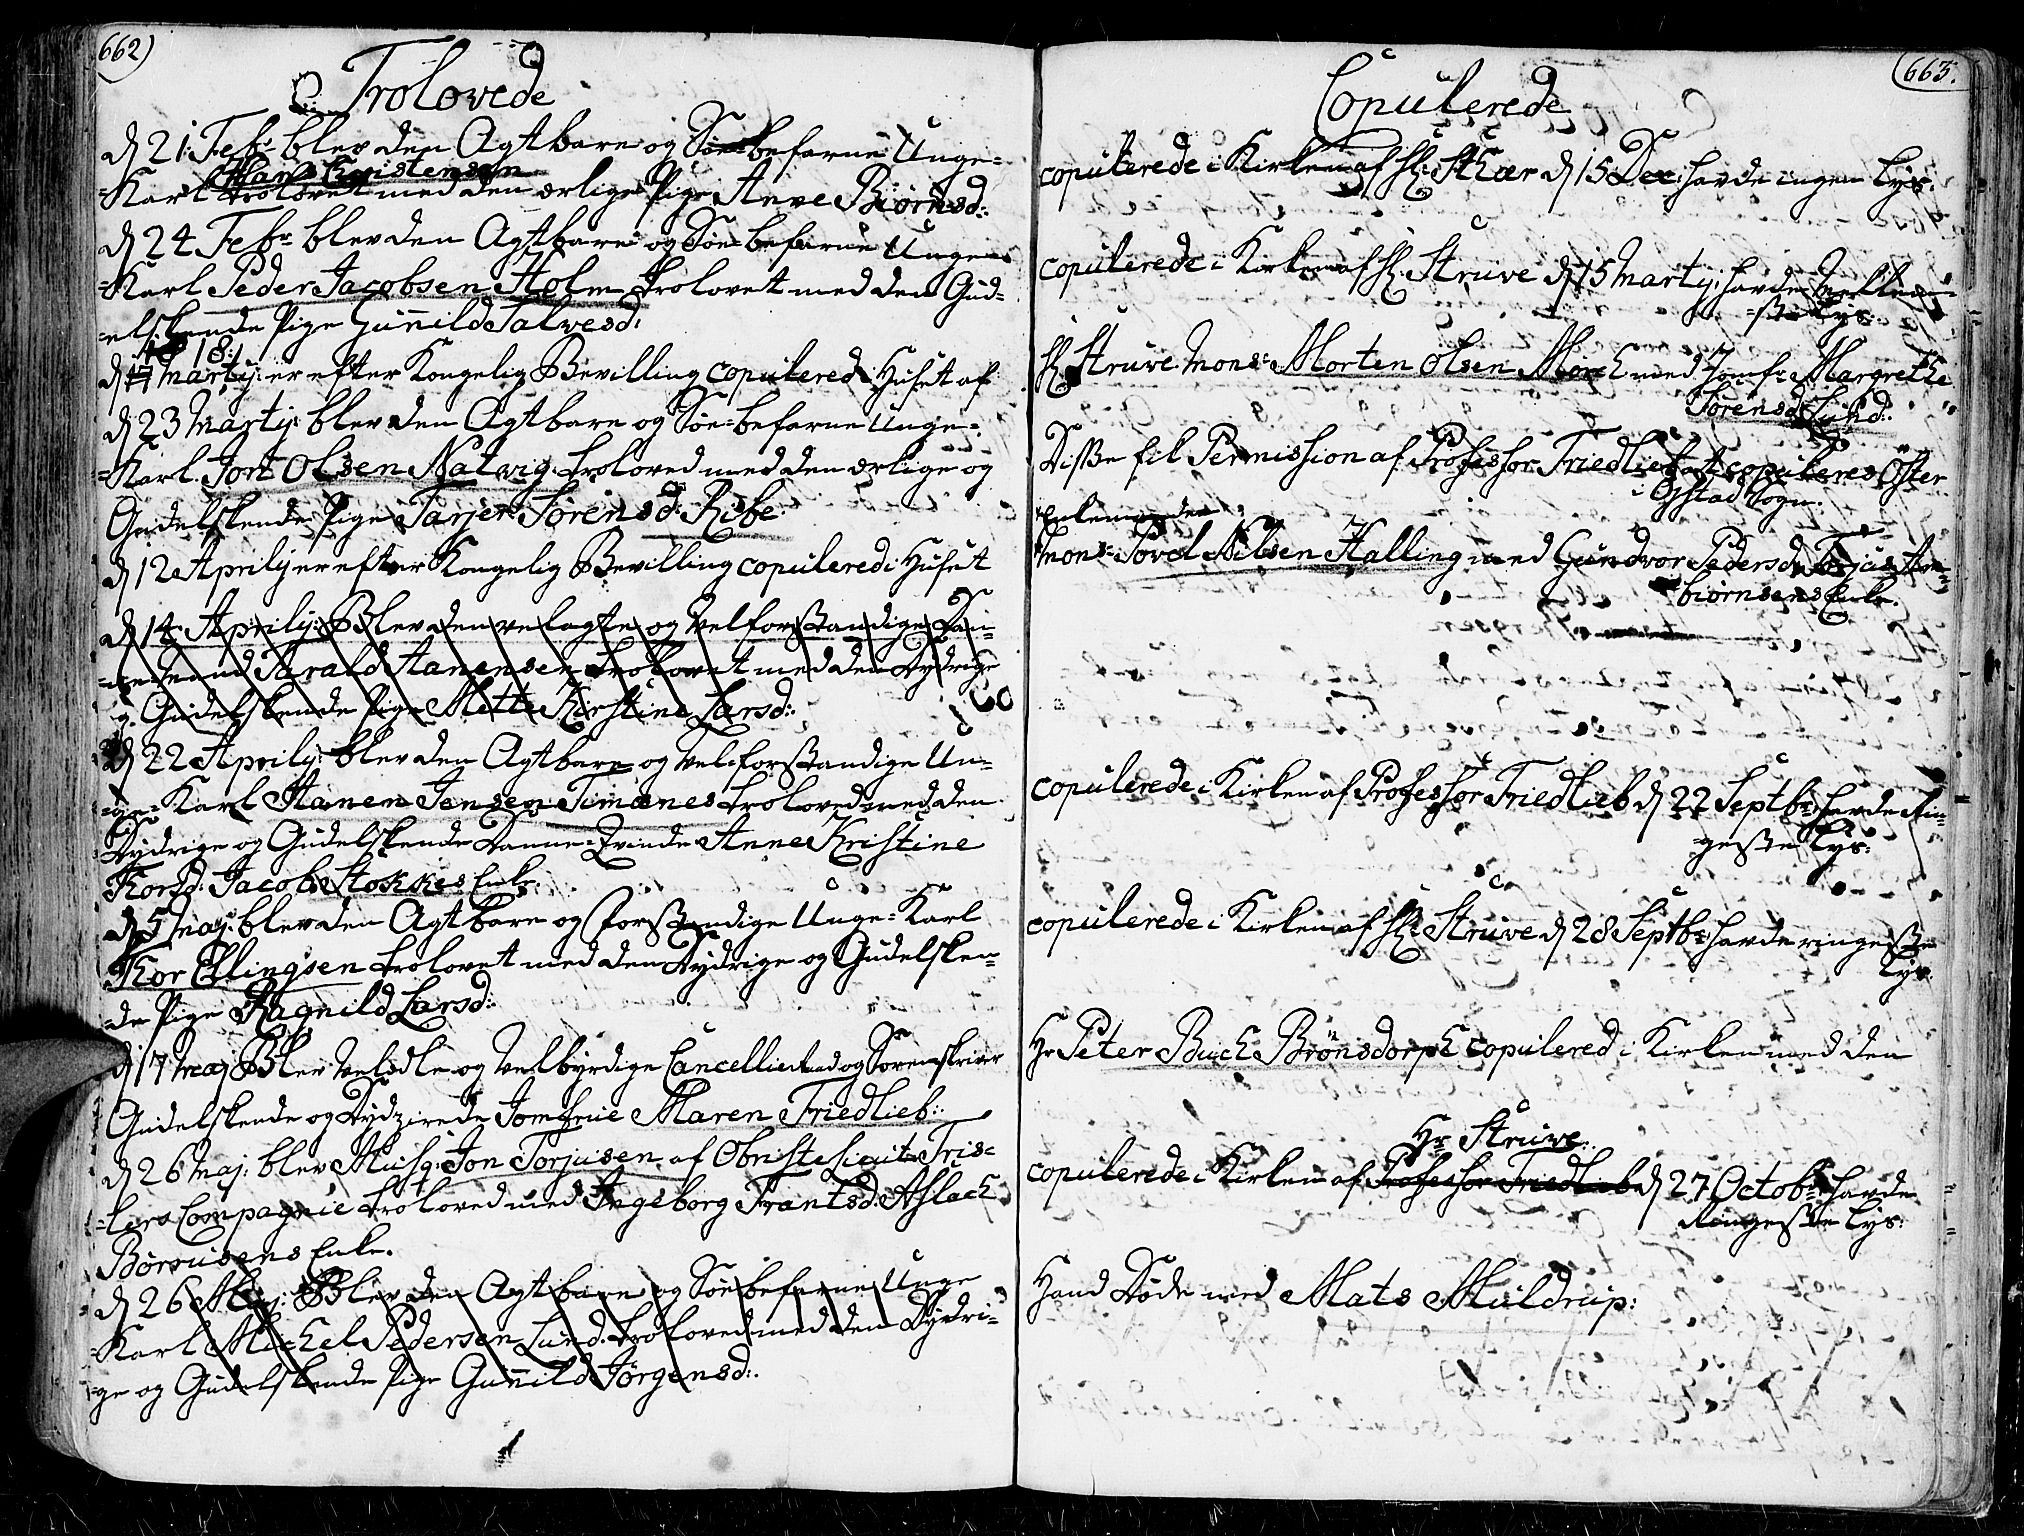 662)
Trolovede
d 21 Febr blev den Agtbare og Søe=befarne Unge=
Hans Christensen
=Karl trolovet med den ærlige Pige Anne Biørnsd:
d 24 Febr blev den Agtbare og Søe=befarne Unge=
=Karl Peder Jacobsen Holm trolovet med den Gud=
=elskende Pige Gunnild Salvesd:
18
d 17 Martij er efter Kongelig Bevilling copulered i Huset af
d 23 Martij blev den Agtbare og Søe=befarne Unge=
=Karl Jort Olsen Natvig troloved med den ærlige og
Gudelskende Pige Tarjer Sørensd: Risbe
d 12 Aprilij er efter Kongelig Bevilling copulered i Huset
d 14 Aprilij: Blev den velagte og Velforstandige Dan=
=nemand Tarald Hanensen trolovet med den Dydrige
og Gudelskende Pige Mette Kirstine Larsd:
d 22 Aprilij blev den Agtbare og Vel=forstandige Un=
=ge=Karl Hanen Jensen Timenes troloved med den
Dydrige og Gudelskende Danne=Qvinde Anne Kristine
Thorsd: Jacob Stokkes Enke.
d 5 Maj: blev den Agtbare og Forstandige Unge=Karl
Thor Ellingsen trolovet med den Dydrige og Gudelsken=
=de Pige Ragnild Larsd:
d 17 Maj Blev Velædle og Velbyrdige Cancellieraad og Sorenskriver
Gudelskende og Dydzirede Jomfrue Maren Friedlieb:
d 26 Maj: blev Musq: Jon Torjusen af Obristelieut: Tris=
=lers Compagnie troloved med Ingeborg Frantsd: Aslach
Børrusens Enke.
d 26 Maj: Blev den Agtbare og Søe=befarne Unge
=Karl Michel Pedersen Lund troloved med den Dydri=
=ge og Gudelskende Pige Gunnild Jørgensd:
663.
Copulerede
copulerede i Kirken af Hr: Skær d 15 Dec: havde ingen Lys.
copulerede i Kirken af Hr: Struve d 15 Martij: havde Mellem=
=ste Lys.
Hr Struve Mons: Morten Olsen Mørch med Jomfr: Margrethe
Sørensd: Lund:
Disse fik Permission af Professor Friedlieb at copuleres i Øster
Ogstad Sogn.
Enkemanden
Mons: Povel Nilsen Halling med Gundvor Pedersd: Torjus Am=
biørnsens Enke.
copulerede i Kirken af Professor Friedlieb d 22 Septbr: havde Rin=
geste Lys.
copulerede i Kirken af Hr: Struve d 28 Septbr: havde ringeste
Lys.
Hr Peter Buch Brønsdorph copulered i Kirken med den
Hr Struve
copulerede i Kirken af Professor Friedlieb d 27 Octobr: havde
Ringeste Lys.
Hand Døde med Mats Muldrup: